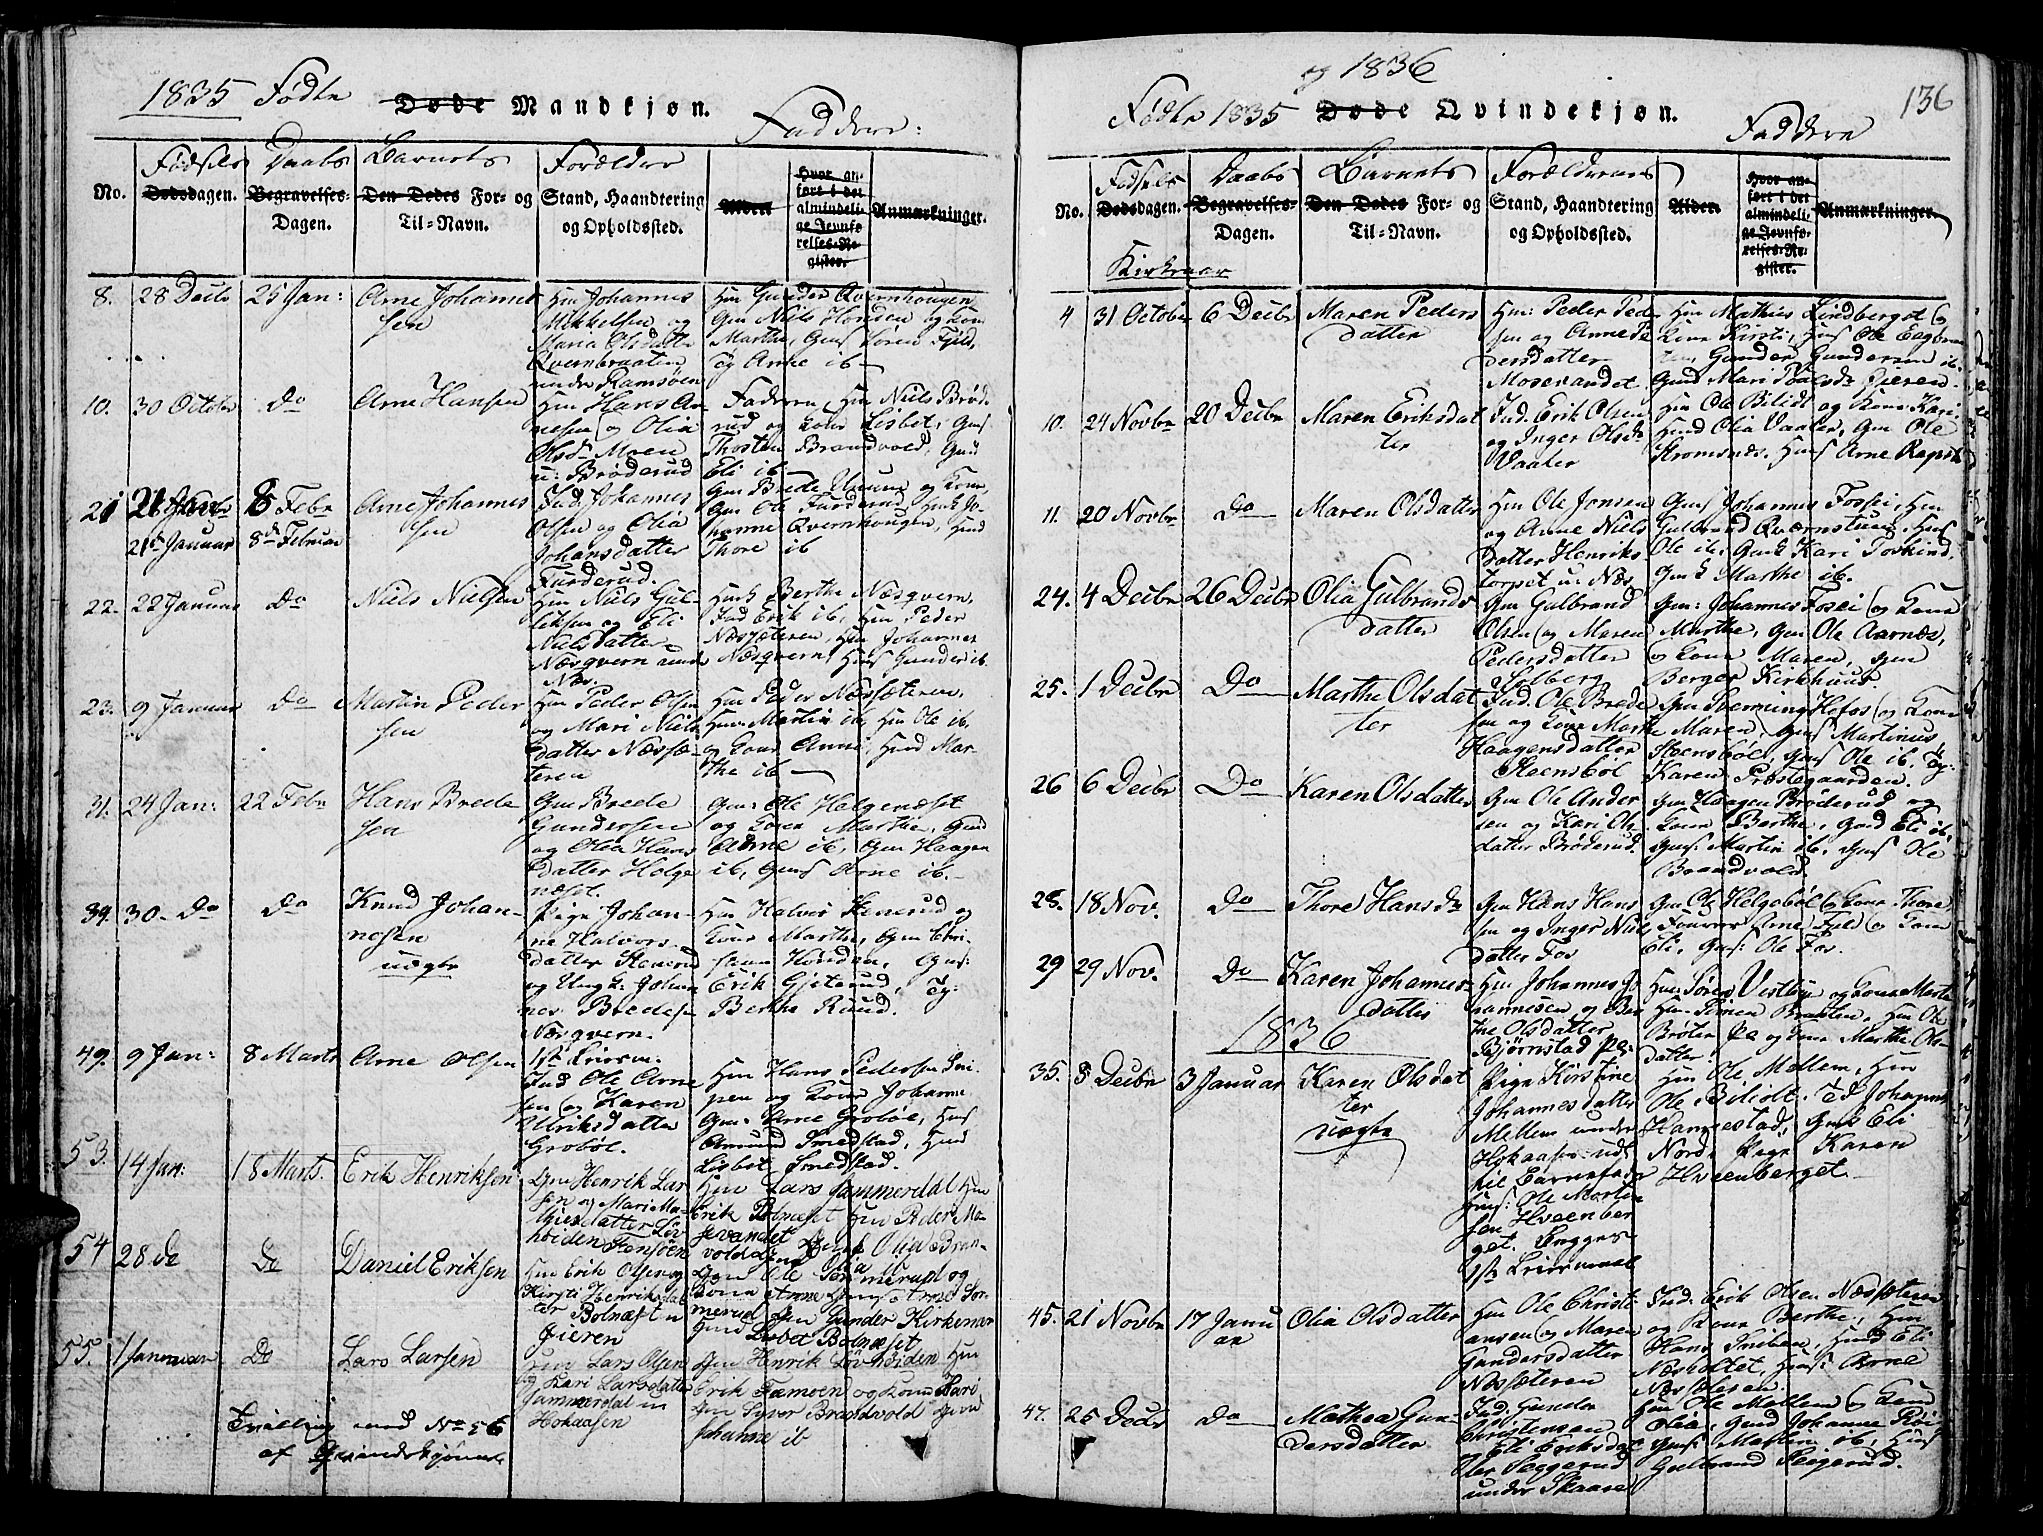 1835 Fødte Døde Mandkjøn. Faddere:
No.
Fødsels
Dødsdagen.
Daabs
Begravelses-
Dagen.
Barnets
Den Dødes For- og
Til-Navn.
Forældre
Stand, Haandtering
og Opholdssted.
Alder.
Hvor an-
ført i det
almindeli-
ge Jevnfø-
relses-Re-
gister.
Anmærkninger.
8. 28 Decbr 25 Jan: Arne Johannes
sen
Hm Johannes
Mikkelsen og
Maria Olsdatter
Qvernbraaten
under Ramsøen
Hm Gunder Qvernhougen
Gm Niels Honden og Kone
Marthe, Gms Søren Fjeld,
Tj Anne ib
10. 30 October do Arne Hansen
Hm Hans Ar-
nesen og Olia
Olsd. Moen
u: Brøderud
Faddere, Hm Niels Brøde
rud og Kone Lisbet, Gms
Thosten Brandvold, Gm
Eli ib
21 21 Jan 8 Febr Arne Johannes
sen
21de Januar 8de Februar
Ind. Johannes
Olsen og Olia
Johansdatter
Furderud.
Gm Brede og Kone,
Gm Ole Furderud,
Qvernhougen, Hmd
Thore ib
22. 22 Januar do Niels Nielsen
Hm Niels Gul-
liksen og Eli
Nielsdatter
Næsqvern under
Næs.
Hmk Berthe Næsqvern,
Ind Erik ib, Hm Peder
Næssæteren, Hm Johannes
Næsqvern, Hms Gunder ib
23. 9 Januar do Martin Peder
sen
Hm Peder Olsen
og Mari Niels
datter Næssæ-
teren
Hm Peder Næssæteren,
Hms Martin ib, Hm Ole ib,
og Kone Anne, Hmd Mar-
the ib
31. 24 Jan: 22 Febr Hans Brede
sen
Gm Brede
Gundersen
og Olia Hans
datter Holge
næset.
Gm: Ole Helgenæset
og Kone Marthe, Gmd
Anne ib, Gm Haagen
ib, Gms Arne ib.
39. 30. do do Knud Johan-
nesen
uægte
Pige Johan-
ne Halvors-
datter Stenerud
og Ungk: Johan
nes Bredesen
Næsqvern.
1ste Leierm.
Hm Halvor Stenerud og
Kone Marthe, Gm Chri-
stian Honden, Gms:
Erik Gjeterud, Tj:
Berthe Ruud.
49. 9 Jan: 8 Marts Arne Olsen
Ind Ole Arne
sen og Karen
Ulriksdatter
Grobøl.
Hm Hans Pedersen Sni-
pen og Kone Johanne
Gm: Arne Grobøl, Hms
Amund Smedstad, Hmd
Lisbet Smedstad.
53. 14 Jan: 18 Marts. Erik Henriksen
Gm Henrik Lar
sen og Mari Ma-
thiesdatter Løv
høiden
Hm Lars Jammerdal Hm
Erik Bolnæset Hm Peder Mo-
sevandet
54 28 do Do Daniel Eriksen
Hm Erik Olsen og
Kirsti Henriksdat
ter Bolnæset u
Øieren
Gm Ole
Kone Anne Gms Arne
Gm Gunder Kirkenær
Hmd Lisbet Bolnæset
55. 1 Januar Do Lars Larsen
Hm Lars Olsen
og Kari Larsdatter
Jammerdal u
Hokaasen
Gm Henrik Løvhøiden Hm
Erik Tamoen og Kone Kari
Gm Syver Brandvold Gmd
Johanne ib
Tvilling med No 56
af Qvindekjønnet
og 1836
Fødte 1835 Døde Qvindekjøn. Faddere 136
No.
Fødsels
Dødsdagen.
Daabs
Begravelses-
Dagen.
Barnets
Den Dødes For- og
Til-Navn.
Forældrenes
Stand, Haandtering
og Opholdssted.
Alder.
Hvor an-
ført i det
almindeli-
ge Jevnfø-
relses-Re-
gister.
Anmærkninger.
Kirkenær
4 31 October 6 Decbr Maren Peders
datter
Hm: Peder Peder
sen og Anne Pe
dersdatter
Mosevandet
Hm Mathies Lindberget og
Kone Kirsti, Hms Ole Eagbraa
ten, Gunder Gundersen ib,
Gmd Mari Poulsdr Øieren.
10. 24 Novbr 20 Decbr Maren Eriksdat
ter
Ind. Erik Olsen
og Inger Olsdr
Vaaler
Hm Ole Bilidt og Kone Kari
Hmd Olia Vaaler, Gm Ole
Stromsnæs, Hms Arne
11. 20 Novbr Do Maren Olsdatter
Hm Ole Jonsen
og Anne Niels
datter Henriks
torpet u: Næs
Gms Johannes Fossei, Hm
Gulbrand Qværnstuen, Hms
Ole ib, Gmk Kari
Gmk Marthe ib.
24. 4 Decbr 26 Decbr Olia Gulbrands
datter
Gm Gulbrand
Olsen og Maren
Pedersdatter
Solberg
Gm: Johannes Fossei og Kone
Marthe, Gm Ole Aarnæs,
og Kone Maren, Gm
Berger Kirkhuus.
25. 1 Decbr Do Marthe Olsdat
ter
Ind. Ole Brede
sen og Kone Marthe
Haagensdatter
Steensbøl
Gm Hemming Hofos og Kone
Maren, Gms Martinus
Steensbøl, Gms Ole ib, Tj:
Karen Præstegaarden.
26 6 Decbr Do Karen Olsdatter
Gm Ole Ander
sen og Kari Ols
datter Brøderud
Gm Haagen Brøderud og
Kone Berthe, Gmd Eli ib,
Gms Martin ib, Gms Ole
Brandvold.
28. 18 Nov. Do Thore Hansdr
Gm Hans Hans
sen og Inger Niels
datter Fos
Gm Ole Helgebøl og Kone Thore
Arne Fjeld og Kone
Eli, Gms: Ole Fos.
29 29 Nov. Do Karen Johannes
datter
Hm Johannes Jo
hannesen og Ber
the Olsdatter
Bjørnstad
Hm Søren og Kone Marte
Hm Simen Braaten, Hm Ole
Braten og Kone Marthe Ols-
datter
1836
35. 3 Decbr 3 Januar Karen Olsdat
ter
uægte
Pige Kirstine
Johannesdatter
Mellem under
Hokaasen ud
til Barnefader
Hms: Ole Morten
sen Hveenber
get. Begges
1ste Leiermaal
Hm Ole Mellem, Hm
Ole Bilidt Johannes
Kannestad, Gmk Eli
Nord, Pige Karen
Hveenberget.
45. 21 Novbr 17 Janu
ar Olia Olsdatter
Hm Ole Christi
ansen og Maren
Gundersdatter
Næssæteren
Ind. Erik Olsen Næssæteren
og Kone Berthe, Hm
Hans Snipen, Hmd Eli
Næsbottet, Hms: Arne
Næssæteren.
47. 25 Decbr do Mathea Gun
dersdatter
Ind. Gunder
Christensen
og Eli Eriksdat
ter Seggerud
under Skaare
Gm Ole Mellem og Kone
Olia, Gmd Johanne
Gms: Martin ib, Hms
Gulbrand Seigerud.